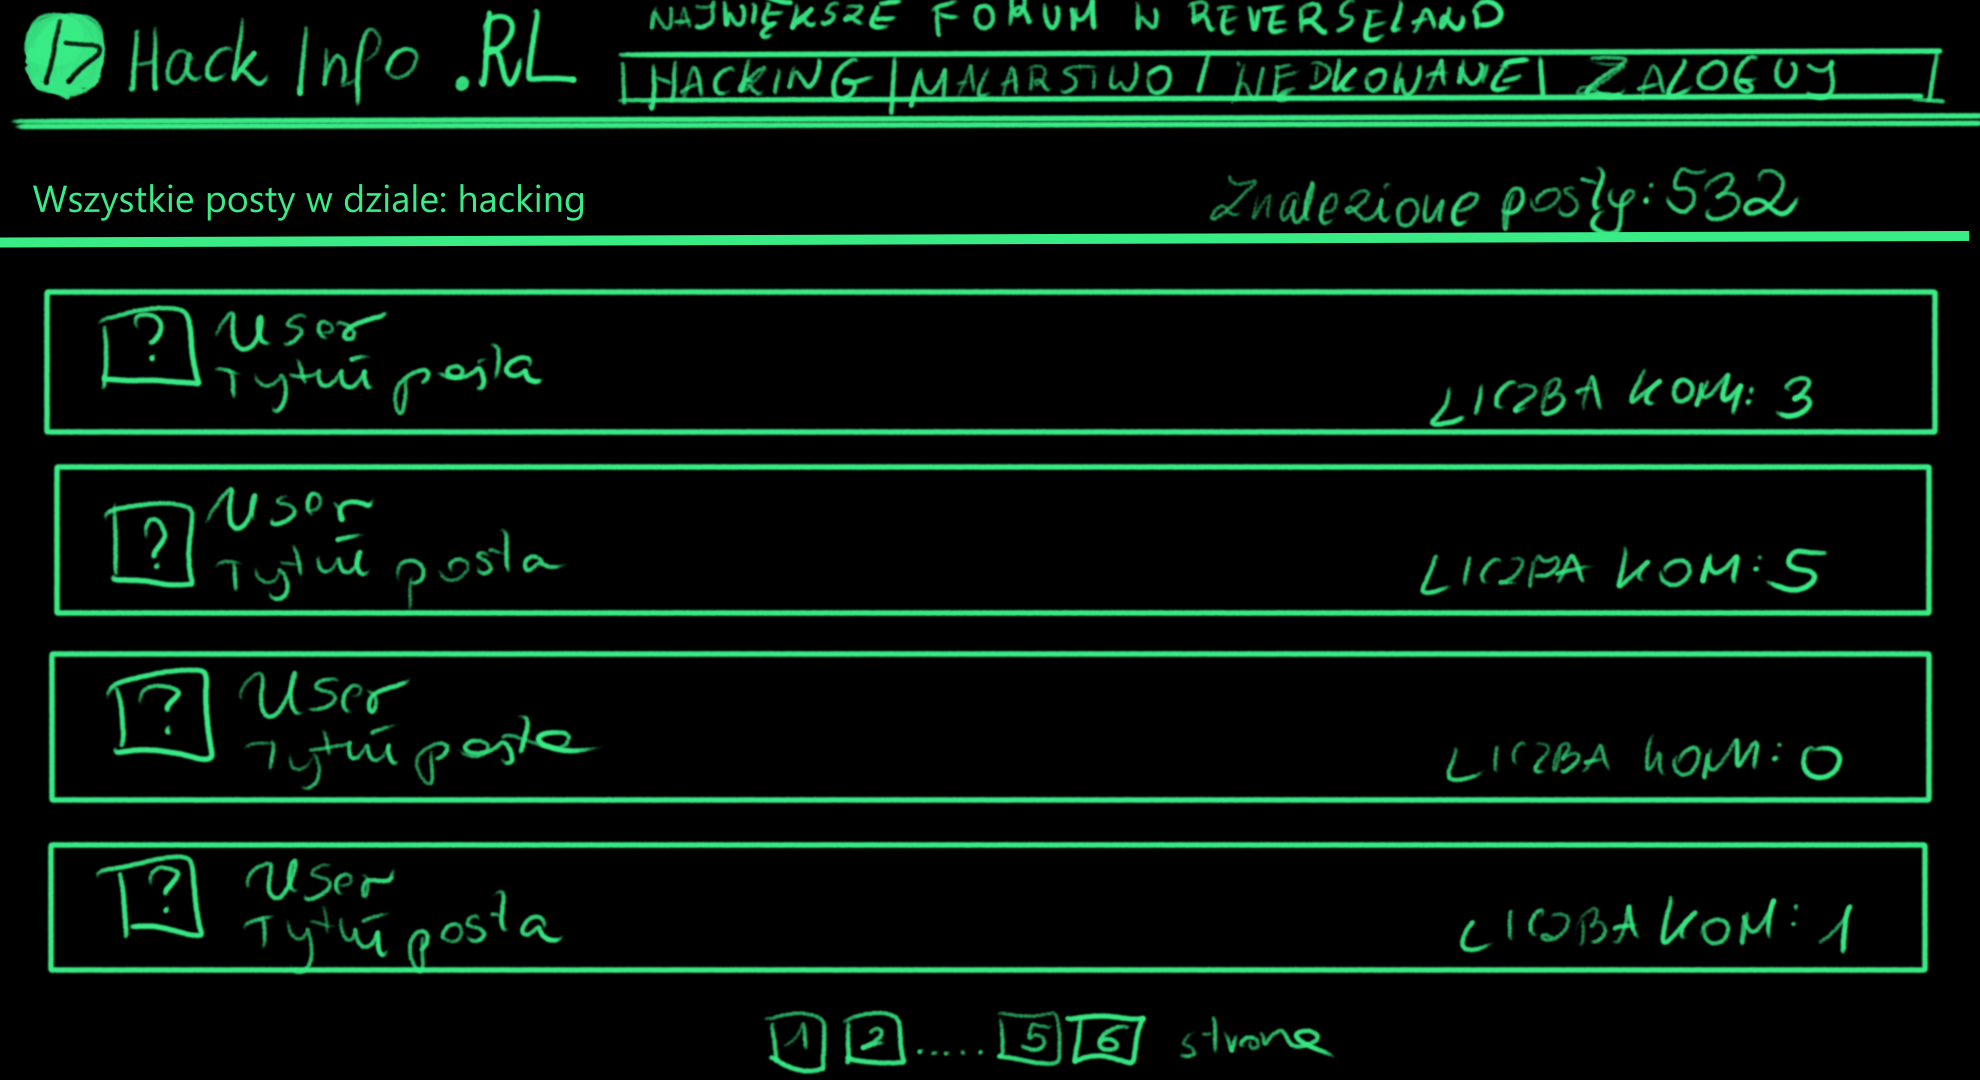 17 Hack Info .RL
NAJWIĘKSZE FORUM W REVERSELAND
HACKING | MALARSTWO | WEDKOWANE | ZALOGUJ
Wszystkie posty w dziale: hacking
Znalezione posty: 532
? User
Tytuł posta
LICZBA KOM: 3
? User
Tytuł posta
LICZBA KOM: 5
? User
Tytuł posta
LICZBA KOM: 0
? User
Tytuł posta
LICZBA KOM: 1
1 2 ..... 5 6 strona